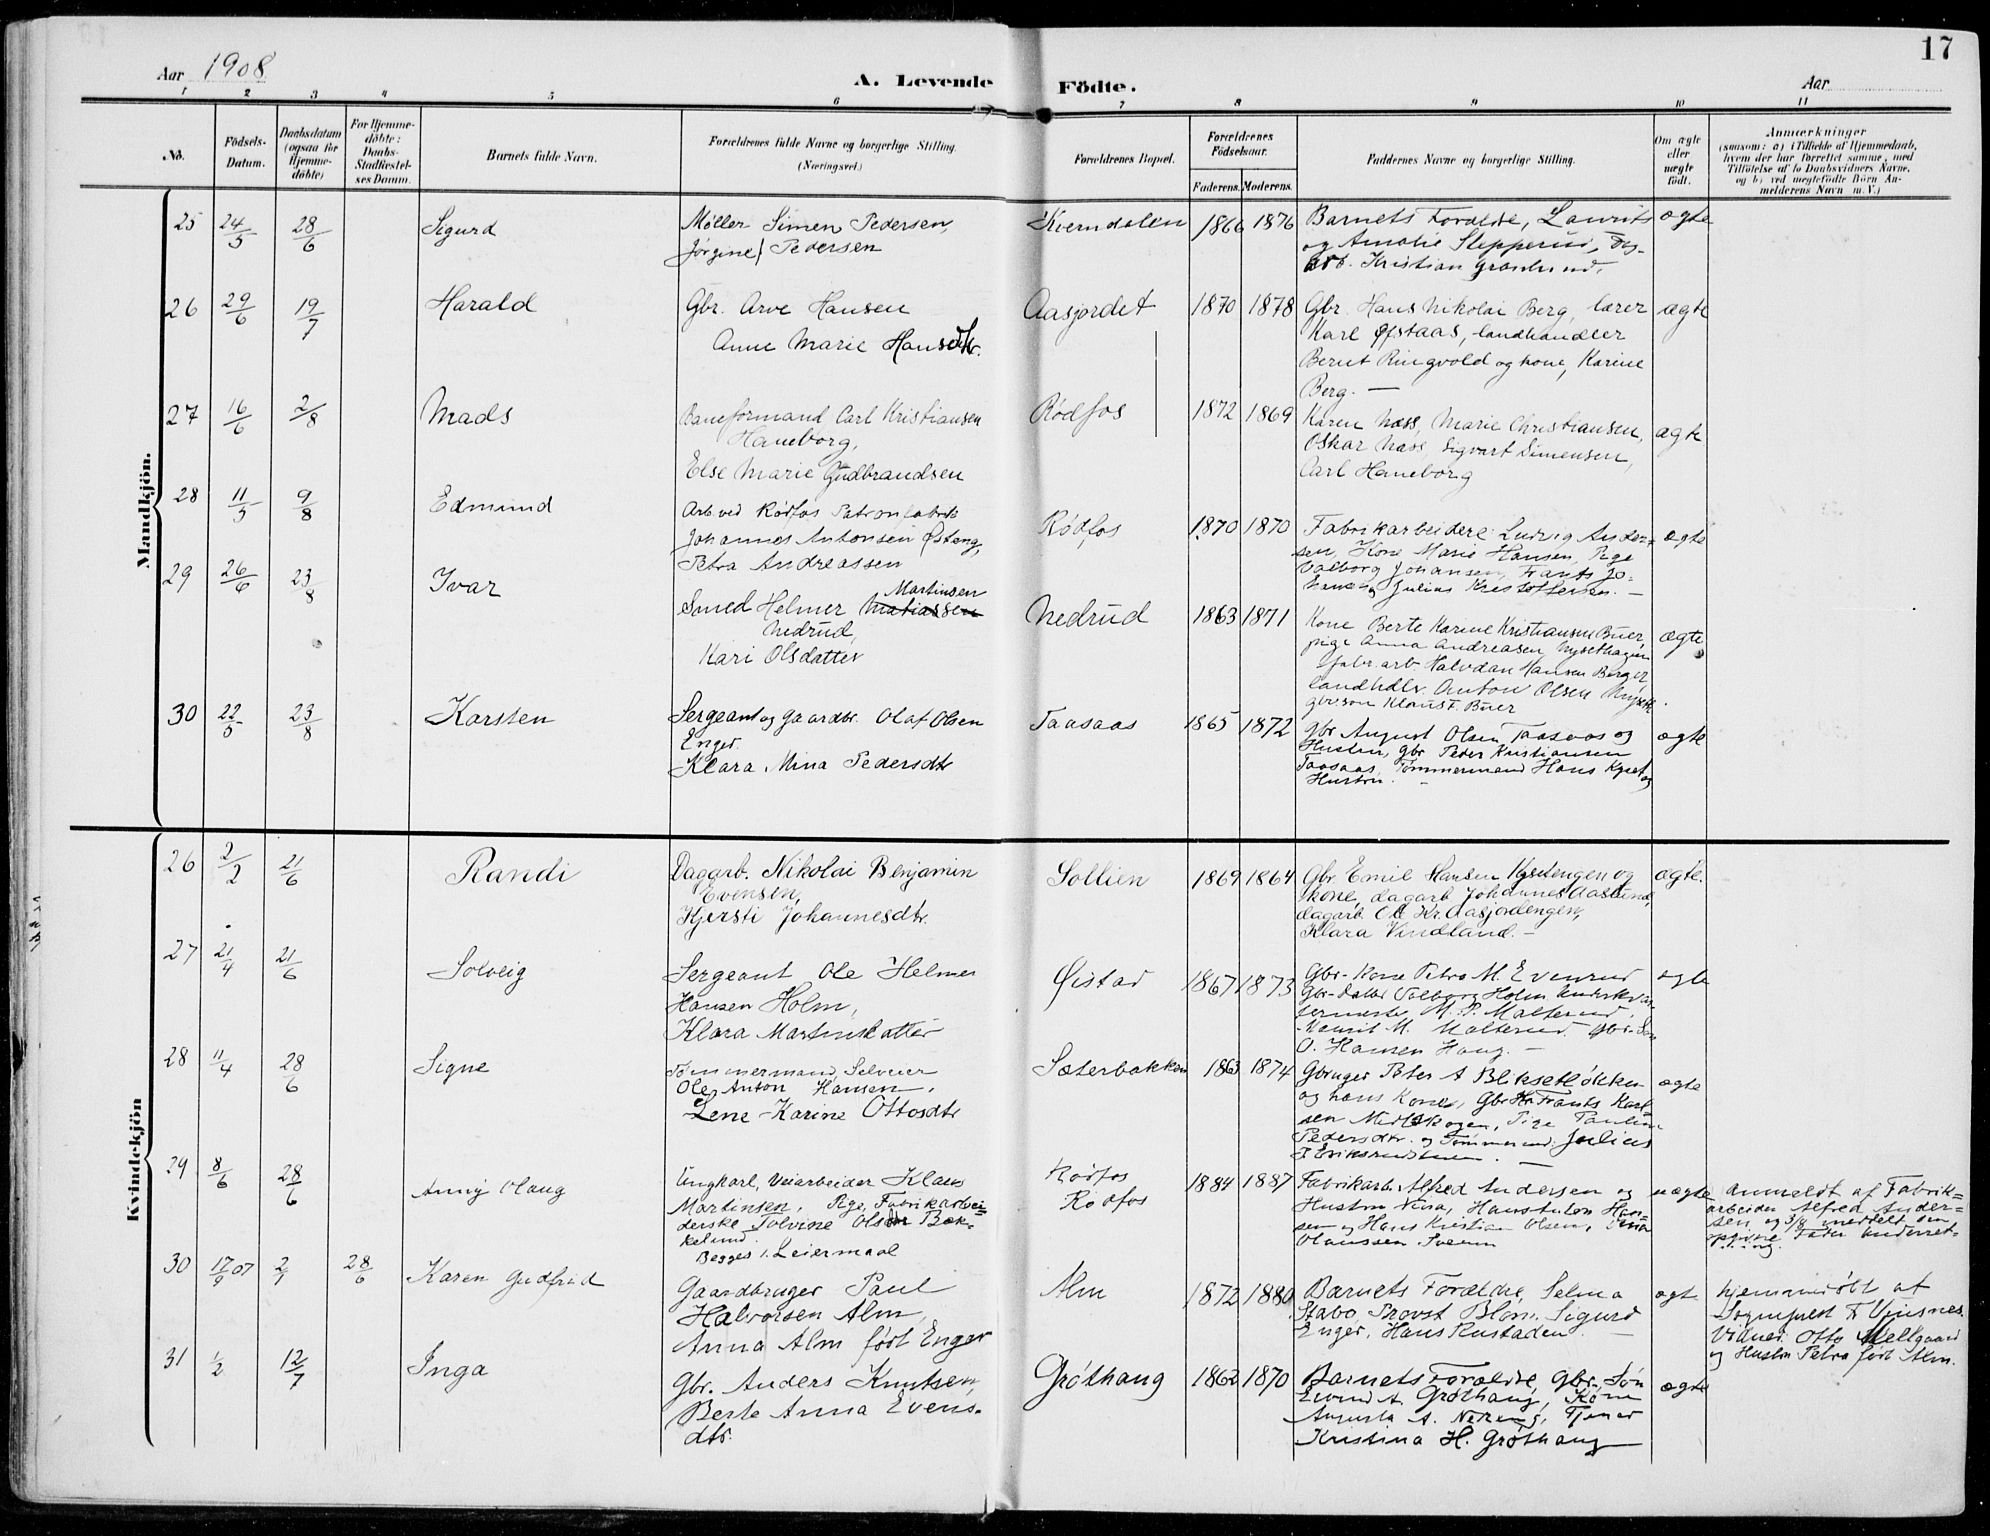 17
Aar 1908
A. Levende Födte.
Aar
1 2 3 4 5 6 7 8 9 10 11
No.
Födsels-Datum.
Daabsdatum (ogsaa for Hjemme-döbte)
For Hjemme-döbte: Daabs-Stadfæstel-ses Datum.
Barnets fulde Navn.
Forældrenes fulde Navne og borgerlige Stilling. (Næringsvei.)
Forældrenes Bopæl.
Forældrenes Födselsaar.
Faderens. Moderens.
Faddernes Navne og borgerlige Stilling.
Om ægte eller uægte födt.
Anmærkninger
(saasom: a) i Tilfælde af Hjemmedaab, hvem der har forrettet samme, med Tilföielse af to Daabsvidners Navne, og b) ved uægtefödte Börn An-melderens Navn m. V.)
Mandkjön.
25 24/5 28/6 Sigurd
Møller Simen Pedersen,
Jørgine Pedersen
Kverndalen 1866 1876
Barnets Forældre, Laurits
og Amalie Slepperud,
Kristian Grønlund.
ægte
26 29/6 19/7 Harald
Gbr. Arve Hansen
Anne Marie Hansdtr.
Aasjordet 1870 1878
Gbr. Hans Nikolai Berg, lærer
Karl Øfstaas, landhandler
Bernt Ringvold og kone, Karine
Berg. —
ægte
27 16/6 2/8 Mads
Baneformand Carl Kristiansen
Haneborg,
Else Marie Gudbrandsen
Rødfos 1872 1869
Karen Næss, Marie Christiansen,
Oskar Næss, Sigvart Simensen,
Carl Haneborg
ægte
28 11/5 9/8 Edmund
Arb. ved Rødfos Patronfabrik
Johannes Antonsen Østeng,
Petra Andreassen
Rødfos 1870 1870
Fabrikarbeidere Ludvig Ander-
sen, Kone Marie Hansen, Pige
Valborg Johansen, Frants Jo-
hansen og Julius Kristoffersen. —
ægte
29 26/6 23/8 Ivar
Martinsen
Smed Helmer Matiassen
Nedrud,
Kari Olsdatter
Nedrud 1863 1871
Kone Berte Karine Kristiansen Buer,
pige Anna Andreasen Nysethagen
fabr.arb. Halvdan Hansen Berger
landhdlr. Anton Olsen
gbr.søn Klaus F. Buer
ægte
30 22/5 23/8 Karsten
Sergeant og Gaardbr. Olaf Olsen
Enger.
Klara Mina Pedersdtr
Taasaas 1865 1872
Gbr August Olsen Taasaas og
Hustru, gbr Peder Kristiansen
Taasaas, Tømmermand Hans Kyset og
Hustru. —
ægte
Kvindekjön
26 2/2 21/6 Randi
Dagarb. Nikolai Benjamin
Evensen,
Kjersti Johannesdtr.
Sollien 1869 1864
Gbr. Emil Hansen Kysetengen og
kone, dagarb Johannes Aaslund,
dagarb. Ole Kr. Aasjordengen,
Klara Vindland. —
ægte.
27 21/4 21/6 Solveig
Sergeant Ole Helmer
Hansen Holm,
Klara Martinsdatter
Øistad 1867 1873
Gbr-kone Petra M. Evenrud
Gbr-datter Valborg Holm
M. P. Malterud,
M. Malterud. Gbr-søn
O. Hansen Haug. —
ægte
28 11/4 28/6 Signe
Tømmermand, Selveier
Ole Anton Hansen,
Lene Karine Ottosdtr
Sæterbakken 1863 1874
Gbruger Peter A Blikset
og hans Kone, Gbr Frants Karl-
sen Medlskogen, Pige Pauline
Pedersdtr. og Tømmermd. Julius
—
ægte
29 8/6 28/6 Anny Olaug
Ungkarl, Veiarbeider Klaus
Martinsen, Pige, Fabrikarbei-
derske Tolvine Olsen Bæk-
kelund.
Begges 1. Leiermaal
Rødfos
Rødfos
1884 1887
Fabrikarb. Alfred Andersen og
Hustru Nina, Hans Anton Han-
sen og Hans Kristian Olsen,
Olaussen
uægte
Anmeldt af Fabrik-
arbeider Alfred Ander-
sen, og 3/8 meddelt den
opgivne Fader Underret-
ning.
30 17/9 07 2/1 28/6 Karen Gudfrid
Gaardbruger Paul
Halvorsen Alm,
Anna Alm født Enger
Alm 1872 1880
Barnets Forældre, Selma
Stabo, Provst Blom, Sigurd
Enger, Hans Rustaden. —
ægte
hjemmedøbt af
Sognepræst F Vinsnes.
Vidner: Otto Mellgaard
og Hustru Petra født Alm.
31 1/2 12/7 Inga
Gbr. Anders Knutsen,
Berte Anna Evens-
dtr.
Grøthaug 1862 1870
Barnets Forældre, Gbr. Søn
Eivind A. Grøthaug, Kone
Augusta A. Nereng, Tjener
Kristina H. Grøthaug
ægte